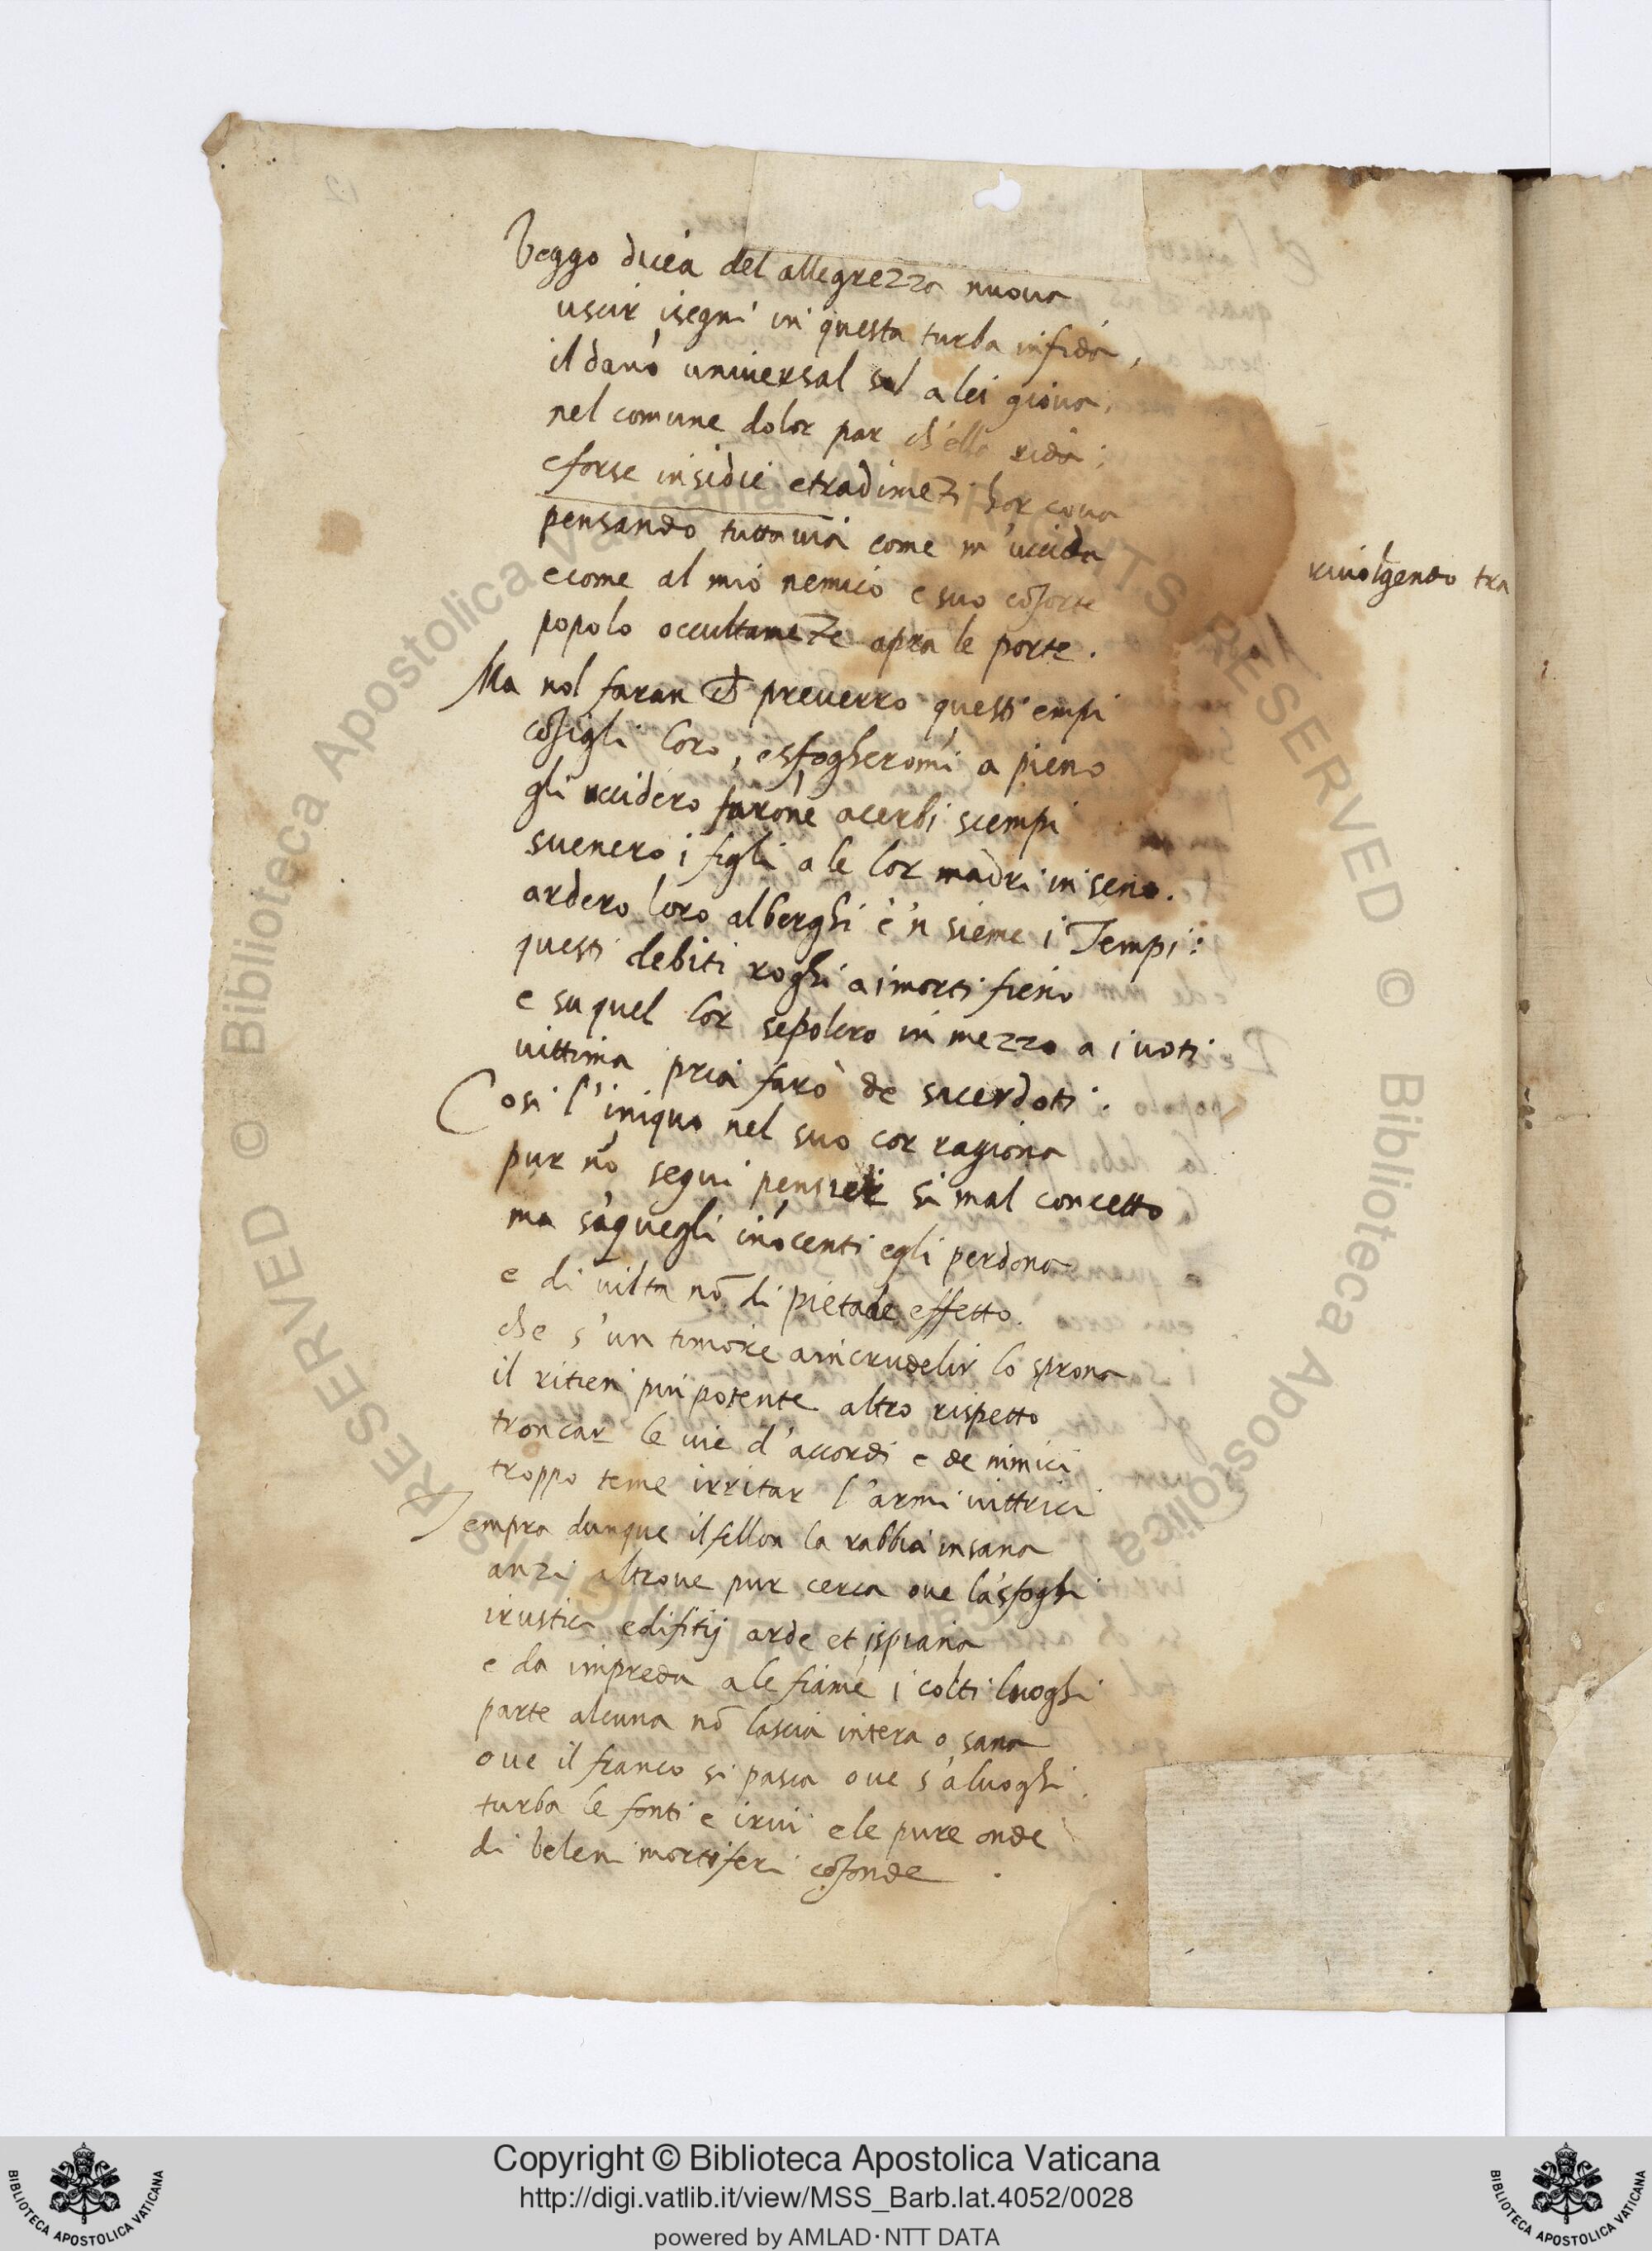 Veggo dicea del allegrezza nuova
uscir isegni in questa turba infida,
il danō universal sol a lei giova,
nel comune dolor par ch'ella rida:
eforse insidie etradimēti hor cova
pensando tuttavia come m'uccida
rivolgendo tra
ecome al mio nemico e suo cōsorte
popolo occultamēte apra le porte.
Ma nol faran ch preverro questi empi
cōsigli loro, esfogheromi a pieno
gli uccidero farone acerbi scempi
svenero i figli a le lor madri in seno.
ardero loro alberghi e'n sieme i Tempi:
questi debiti roghi a i morti fieno
e su quel lor sepolcro in mezzo a i voti
vittima pria farò de sacerdoti.
Cosi l'iniquo nel suo cor ragiona
pur nō segui pensier si mal concetto
ma s'aquegli inocenti egli perdona
e di viltà nō di pietade effetto.
che s'un timore a incrudelir lo sprona
il ritien piu potente altro rispetto
troncar le vie d'accordi e de nimici
troppo teme irritar l'armi vittrici
Tempra dunque il fellon la rabbia insana
anzi altrove pur cerca ove la sfoghi
i rustici edifitij arde et ispiana
e da in preda a le fiāme i colti luoghi
parte alcuna nō lascia intera o sana
ove il franco si pasca ove s'alluoghi
turba le fonti e i rivi e le pure onde
di veleni mortiferi cōfonde.
Copyright © Biblioteca Apostolica Vaticana
http://digi.vatlib.it/view/MSS_Barb.lat.4052/0028
powered by AMLAD·NTT DATA
BIBLIOTECA APOSTOLICA VATICANA
BIBLIOTECA APOSTOLICA VATICANA